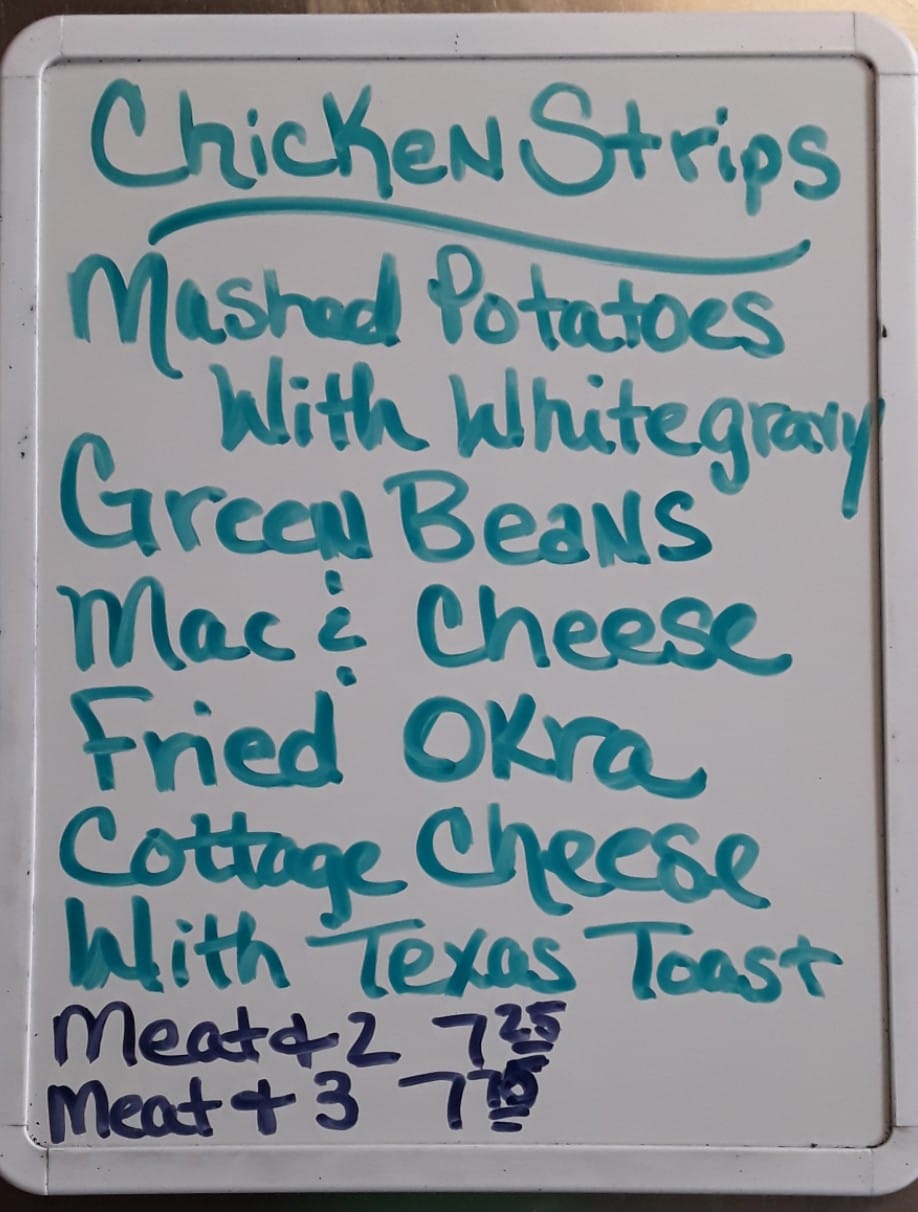 Chicken Strips
Mashed Potatoes
With White gravy
Green Beans
Mac & Cheese
Fried Okra
Cottage Cheese
With Texas Toast
Meat & 2 7 25
Meat + 3 7